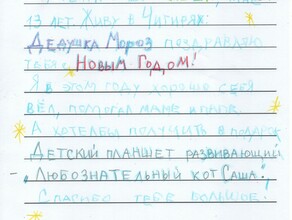 13 лет. Живу в Чигирях.
Дедушка Мороз поздравляю
тебя с Новым Годом!
Я в этом году хорошо себя
вёл, помогал маме и папе.
А хотел бы получить в подарок
Детский планшет развивающий
„Любознательный кот Саша".
Спасибо тебе большое!